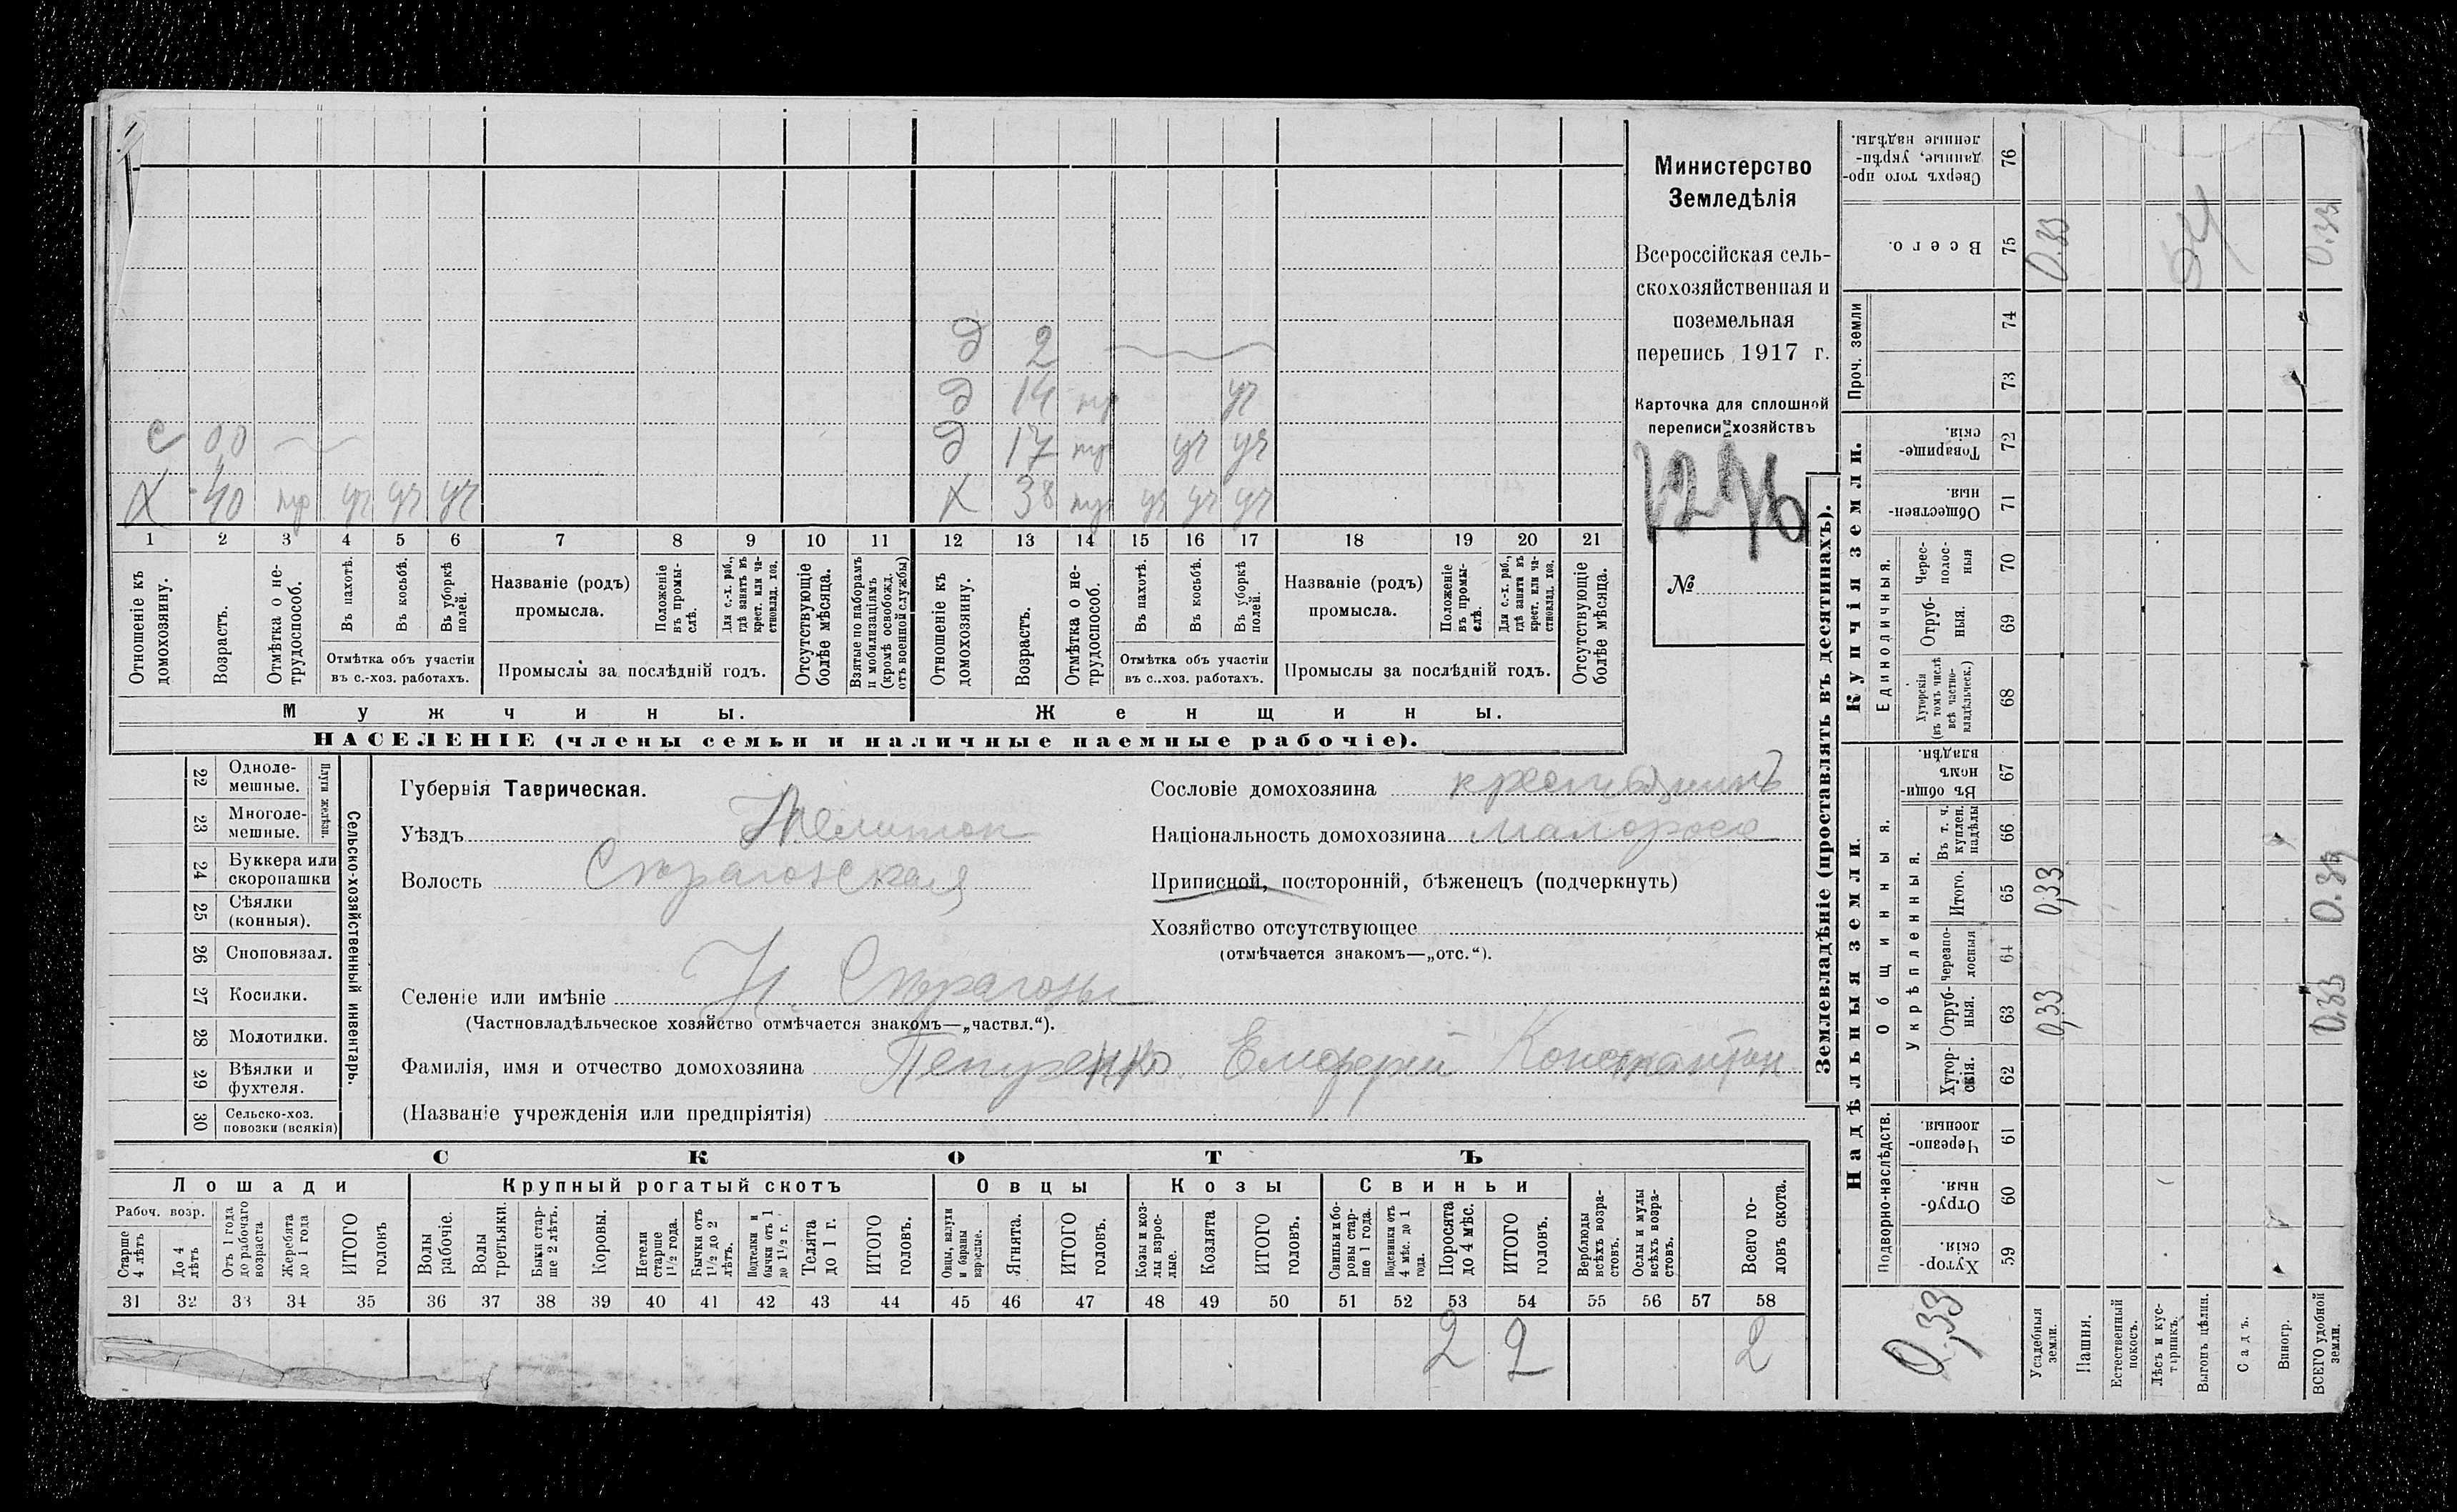 Министерство
Земледѣлія
Всероссійская сель-
скохозяйственная и
поземельная
перепись 1917 г.
Карточка для сплошной
переписи хозяйствъ
№
д 2
д 14 тр уч
с 0,0 д 17 тр уч уч
Х 40 тр уч уч уч Х 38 тр уч уч уч
1 2 3 4 5 6 7 8 9 10 11 12 13 14 15 16 17 18 19 20 21
Отношеніе къ домохозяину.
Возрастъ.
Отмѣтка о не-трудоспособ.
Въ пахотѣ.
Въ косьбѣ.
Въ уборкѣ полей.
Отмѣтка объ участіи
въ с.-хоз. работахъ.
Названіе (родъ)
промысла.
Положеніе въ промы-слѣ.
Для с.-х. раб., гдѣ занятъ въ крест. или ча-стновлад. хоз.
Промыслы за послѣдній годъ.
Отсутствующіе болѣе мѣсяца.
Взятые по наборамъ и мобилизаціямъ (кромѣ освобожд. отъ военной службы)
Отношеніе къ домохозяину.
Возрастъ.
Отмѣтка о не-трудоспособ.
Въ пахотѣ.
Въ косьбѣ.
Въ уборкѣ полей.
Отмѣтка объ участіи
въ с.-хоз. работахъ.
Названіе (родъ)
промысла.
Положеніе въ промы-слѣ.
Для с.-х. раб., гдѣ занята въ крест. или ча-стновлад. хоз.
Промыслы за послѣдній годъ.
Отсутствующіе болѣе мѣсяца.
Мужчины. Женщины.
НАСЕЛЕНІЕ (члены семьи и наличные наемные рабочіе).
22 Одноле-мешные.
23 Многоле-мешные.
Плуги желѣзн.
24 Буккера или скоропашки
25 Сѣялки (конныя).
26 Сноповязал.
27 Косилки.
28 Молотилки.
29 Вѣялки и фухтеля.
30 Сельско-хоз. повозки (всякія)
Сельско-хозяйственный инвентарь.
Губернія Таврическая.
Уѣздъ Мелитоп
Волость
Сословіе домохозяина крестьянинъ
Національность домохозяина малоросс
Приписной, посторонній, бѣженецъ (подчеркнуть)
Хозяйство отсутствующее
(отмѣчается знакомъ—„отс.“).
Селеніе или имѣніе Н.
(Частновладѣльческое хозяйство отмѣчается знакомъ—„частвл.“).
Фамилія, имя и отчество домохозяина
(Названіе учрежденія или предпріятія)
СКОТЪ
Лошади Крупный рогатый скотъ Овцы Козы Свиньи
Рабоч. возр.
Старше 4 лѣтъ
До 4 лѣтъ
Отъ 1 года до рабочаго возраста
Жеребята до 1 года
ИТОГО головъ
Волы рабочіе.
Волы третьяки.
Быки стар-ше 2 лѣтъ.
Коровы.
Нетели старше 1½ года.
Бычки отъ 1½ до 2 лѣтъ.
Подтелки и бычки отъ 1 до 1½ г.
Телята до 1 г.
ИТОГО головъ.
Овцы, валухи и бараны взрослые.
Ягнята.
ИТОГО головъ.
Козы и коз-лы взрос-лые.
Козлята
ИТОГО головъ.
Свиньи и бо-ровы стар-ше 1 года.
Подсвинки отъ 4 мѣс. до 1 года.
Поросята до 4 мѣс.
ИТОГО головъ.
Верблюды всѣхъ возра-стовъ.
Ослы и мулы всѣхъ возра-стовъ.
Всего го-ловъ скота.
31 32 33 34 35 36 37 38 39 40 41 42 43 44 45 46 47 48 49 50 51 52 53 54 55 56 57 58
2 2 2
Землевладѣніе (проставлять въ десятинахъ).
Надѣльныя земли. Купчія земли. Проч. земли
Подворно-наслѣдств. Общинныя. Единоличныя.
Укрѣпленныя.
Хутор-скія. 59
Отруб-ныя. 60
Черезпо-лосныя 61
Хутор-скія. 62
Отруб-ныя. 63
Черезпо-лосныя 64
Итого. 65
Въ т. ч. куплен. надѣлы 66
Въ общи-номъ владѣн. 67
Хуторскія (въ томъ числѣ всѣ частно-владѣльческ.) 68
Отруб-ныя. 69
Черес-полос-ныя 70
Обществен-ныя. 71
Товарище-скія. 72
73
74
Всего. 75
Сверхъ того про-данные, укрѣп-ленные надѣлы. 76
0,33
Усадебныя земли. 0,33 0,33 0.33
Пашня.
Естественный покосъ.
Лѣсъ и кус-тарникъ.
Выгонъ цѣлин.
Садъ.
Виногр.
ВСЕГО удобной земли. 0,33 0.33 0.33